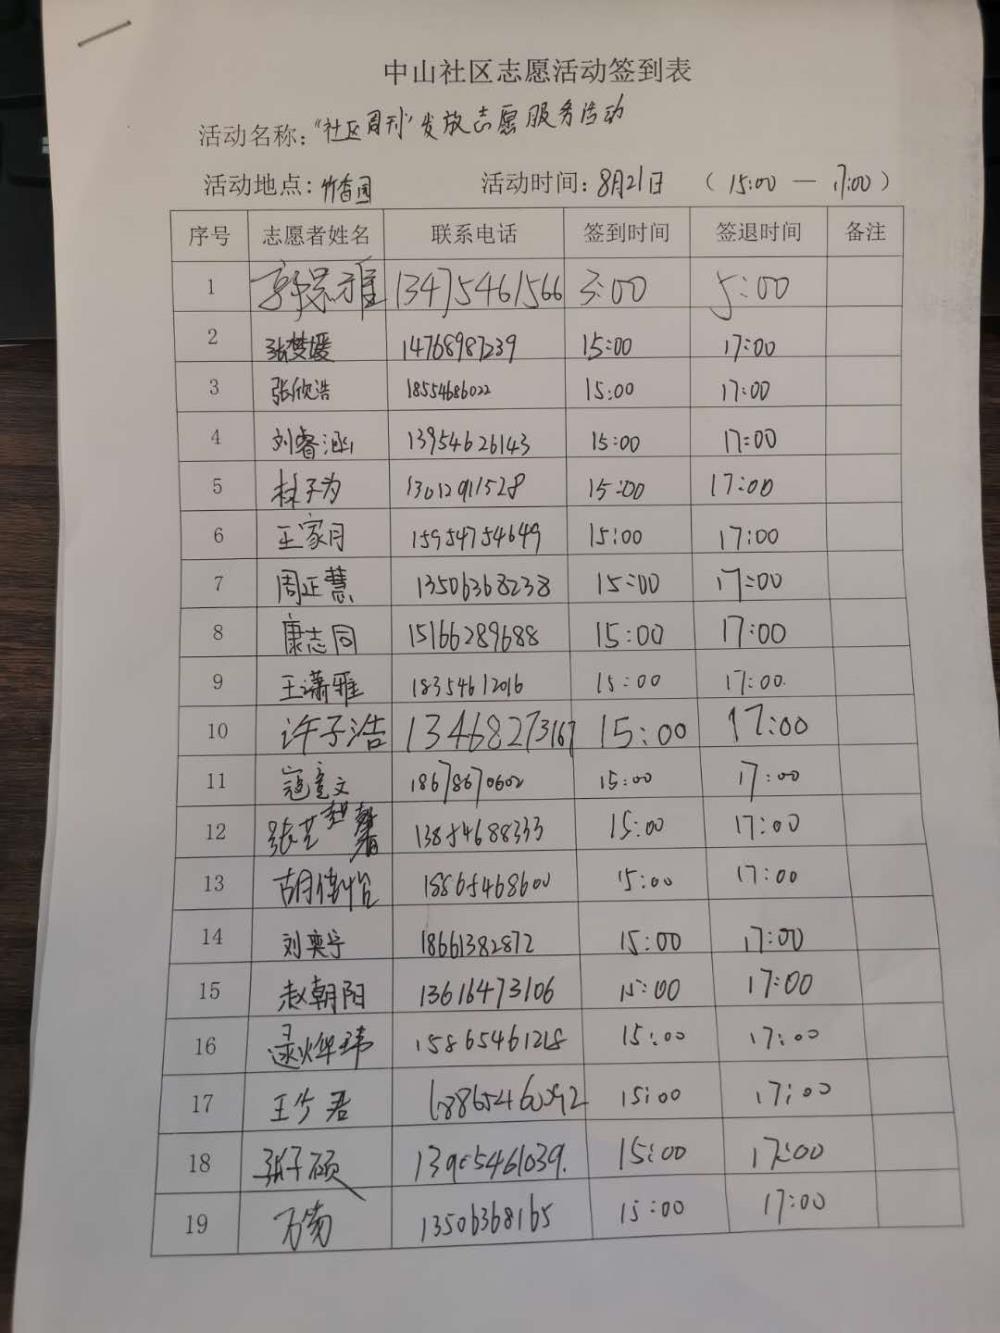 中山社区志愿活动签到表
活动名称:“社区周刊”发放志愿服务活动
活动地点:竹香园 活动时间:8月21日 (15:00 — 17:00)
序号 志愿者姓名 联系电话 签到时间 签退时间 备注
1 13475461566 3:00 5:00
2 张梦媛 14768987239 15:00 17:00
3 张欣浩 18554686022 15:00 17:00
4 刘睿涵 13954626143 15:00 17:00
5 林子为 13012911528 15:00 17:00
6 王家月 15954754649 15:00 17:00
7 周正慧 13506368238 15:00 17:00
8 康志同 15166289688 15:00 17:00
9 王潇雅 18354612016 15:00 17:00
10 许子浩 13468273167 15:00 17:00
11 寇童文 18678670602 15:00 17:00
12 13854688333 15:00 17:00
13 18865468600 15:00 17:00
14 刘奕宁 18661382872 15:00 17:00
15 赵朝阳 13616473106 15:00 17:00
16 15865461218 15:00 17:00
17 王少君 15:00 17:00
18 张子硕 13905461039. 15:00 17:00
19 13506368165 15:00 17:00